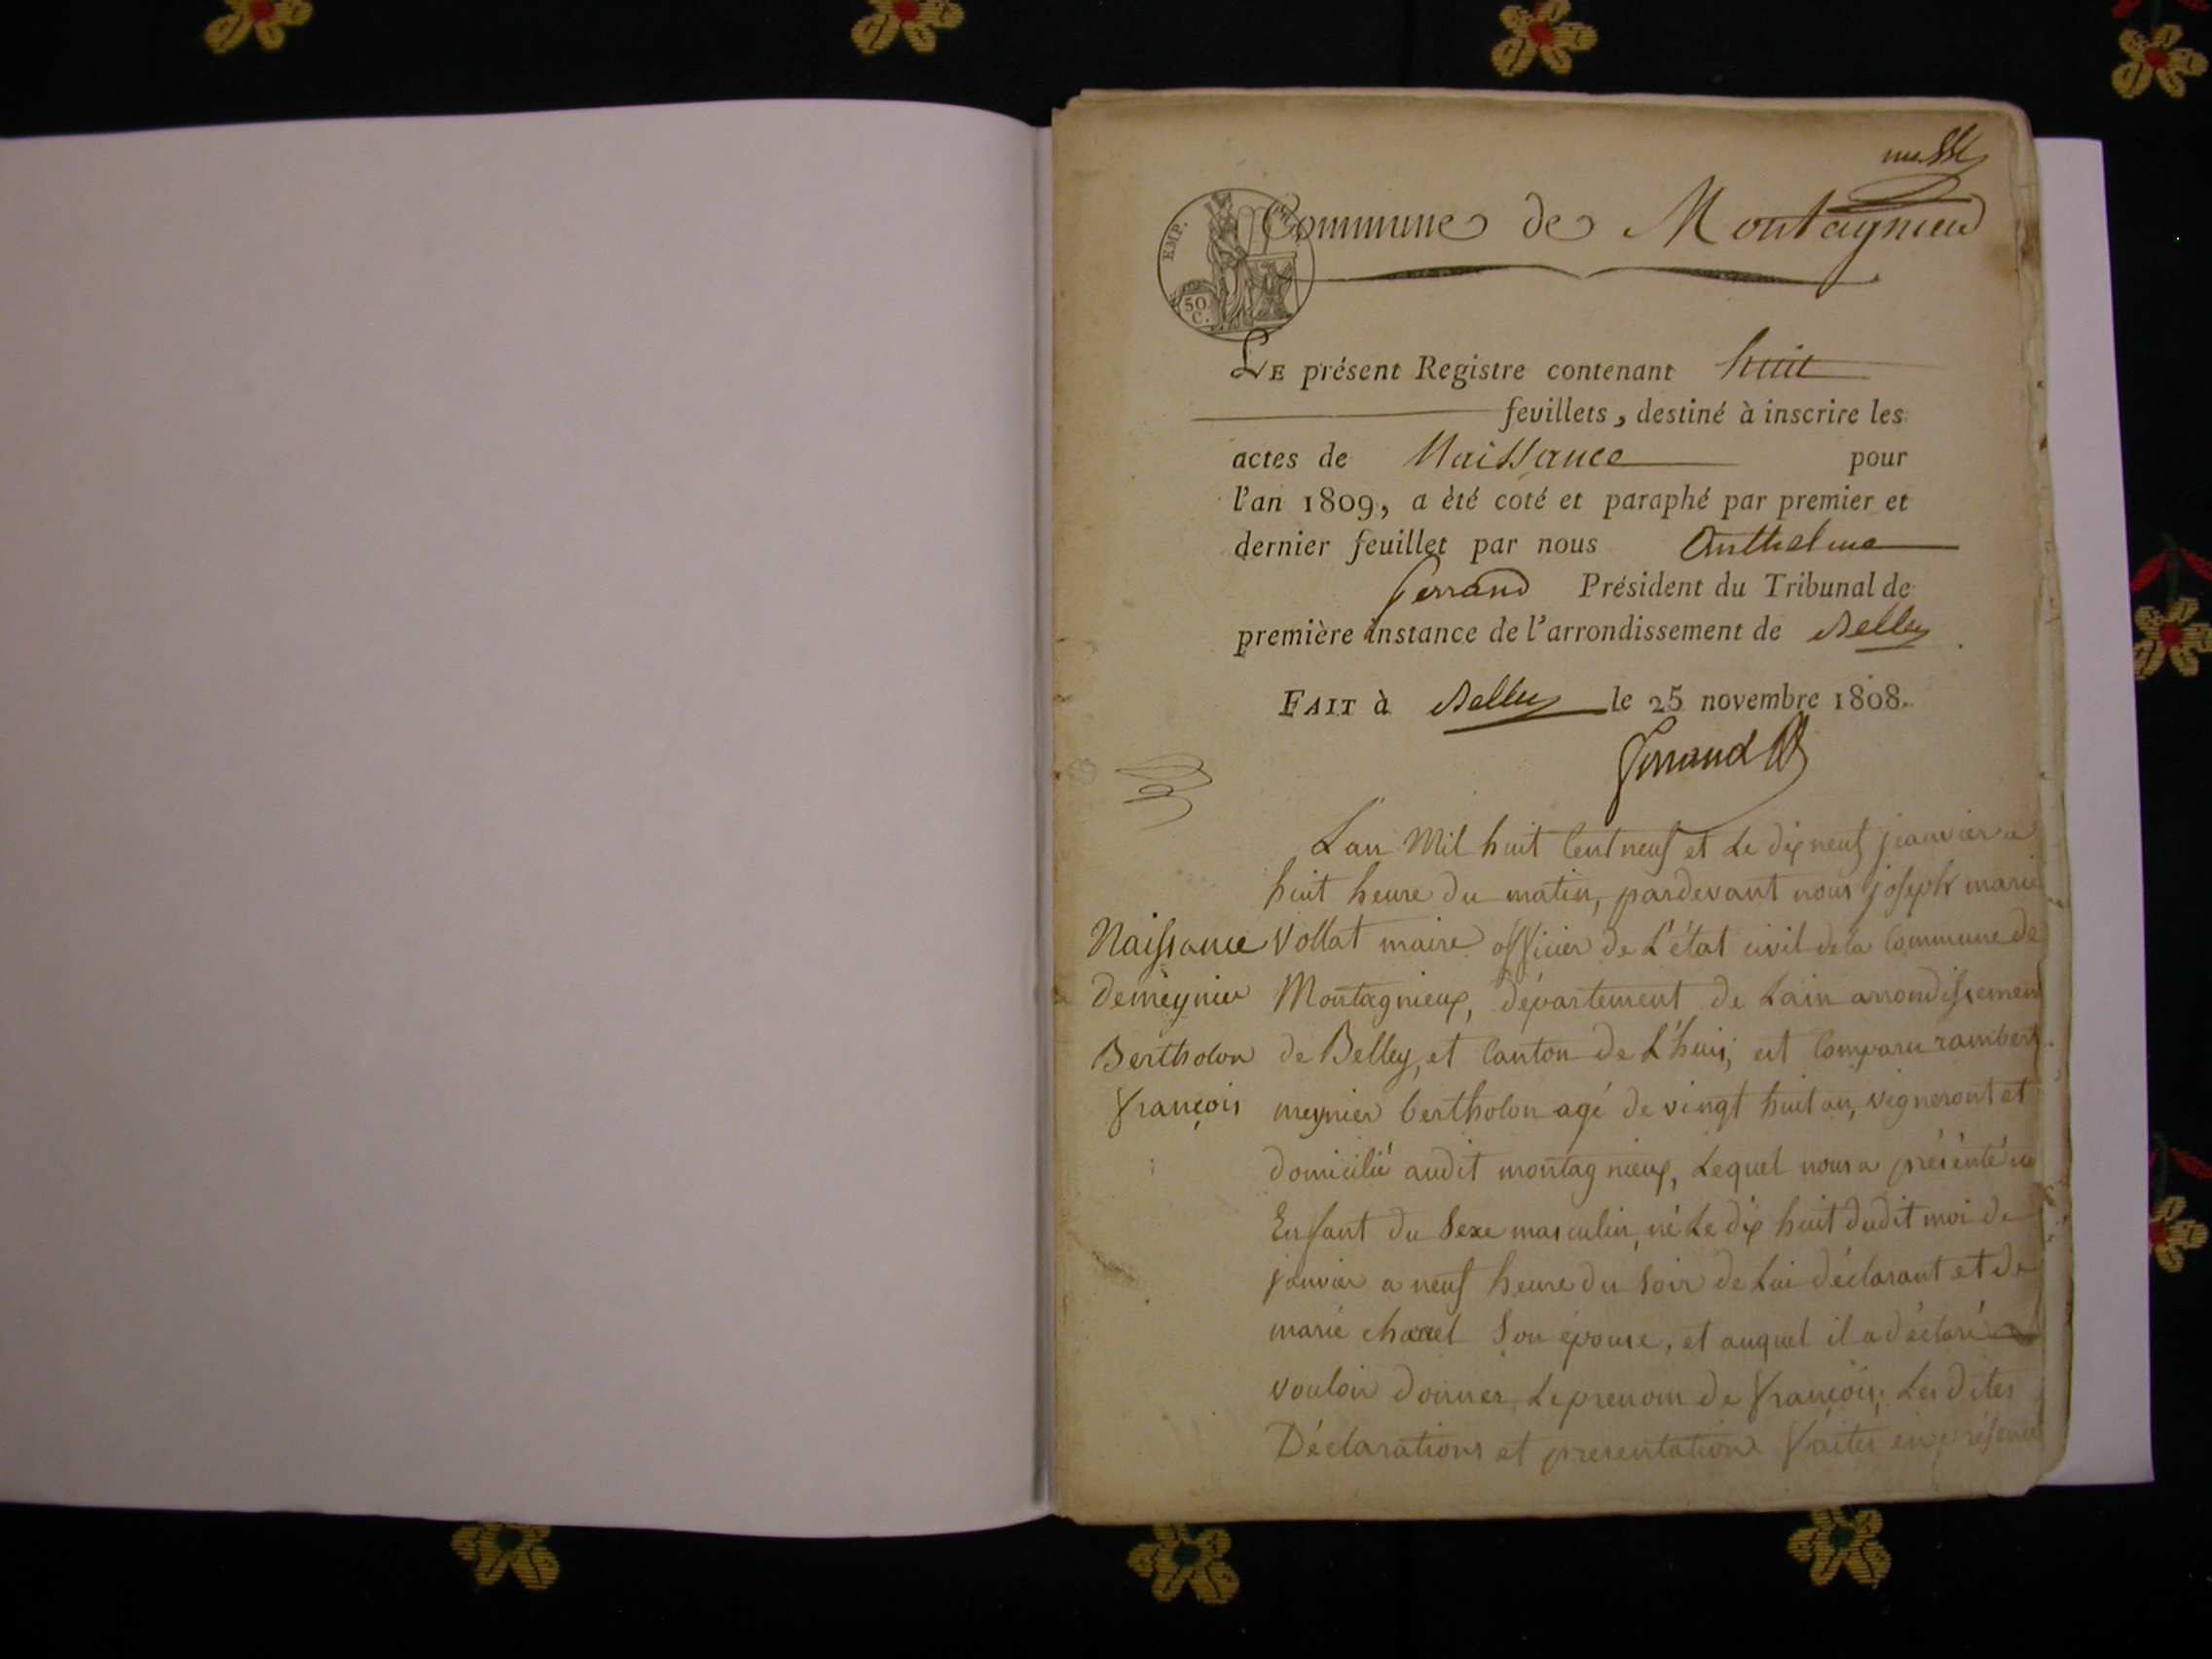 Commune de Montagnieu
EMP.
50
C.
LE présent Registre contenant huit
feuillets, destiné à inscrire les
actes de Naissance pour
l'an 1809, a èté coté et paraphé par premier et
dernier feuillet par nous Anthelme
Ferrand Président du Tribunal de
première instance de l'arrondissement de Belley
FAIT à Belley le 25 novembre 1808.
Ferrand
L'an Mil huit Cent neuf et Le dix neuf jeanvier a
huit heure du matin, pardevant nous joseph marie
Vollat maire officier de L'état civil de la Commune de
Montagnieux, département de Lain arrondissement
de Belley, et Canton de L'huis, est Comparu rambert
meynier bertholon agé de vingt huit an, vigneront et
domicilié audit montagnieux, Lequel nous a présenté un
Enfant du Sexe masculin, né Le dix huit dudit moi de
janvier a neuf heure du Soir de Lui déclarant et de
marie Son épouse, et auquel il a déclaré
vouloir donner Le prenom de françois; Les dites
Déclarations et presentation faites en présence
Naissance
de meynier
Bertholon
françois